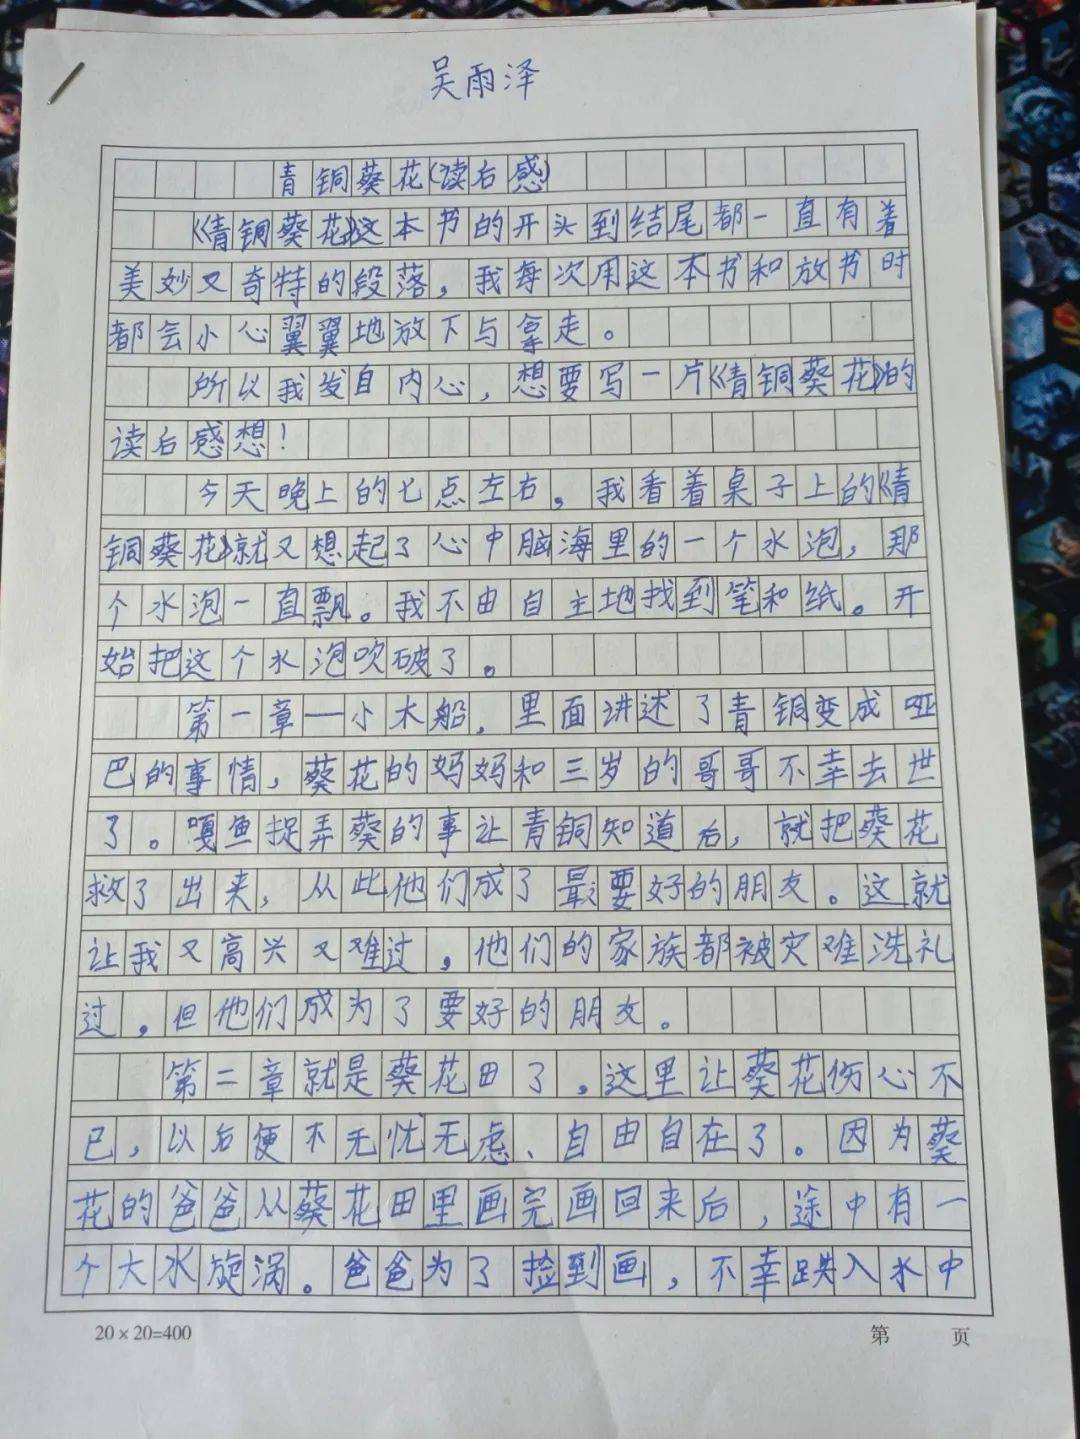 吴雨泽
青铜葵花(读后感)
《青铜葵花》这本书的开头到结尾都一直有着
美妙又奇特的段落，我每次用这本书和放书时
都会小心翼翼地放下与拿走。
所以我发自内心，想要写一片《青铜葵花》的
读后感想！
今天晚上的七点左右。我看着桌子上的《青
铜葵花》就又想起了心中脑海里的一个水泡，那
个水泡一直飘。我不由自主地找到笔和纸。开
始把这个水泡吹破了。
第一章——小木船，里面讲述了青铜变成哑
巴的事情，葵花的妈妈和三岁的哥哥不幸去世
了。嘎鱼捉弄葵的事让青铜知道后，就把葵花
救了出来，从此他们成了最要好的朋友。这就
让我又高兴又难过，他们的家族都被灾难洗礼
过，但他们成为了要好的朋友。
第二章就是葵花田了，这里让葵花伤心不
已，以后便不无忧无虑、自由自在了。因为葵
花的爸爸从葵花田里画完画回来后，途中有一
个大水旋涡。爸爸为了捡到画，不幸跌入水中
20×20=400
第 页